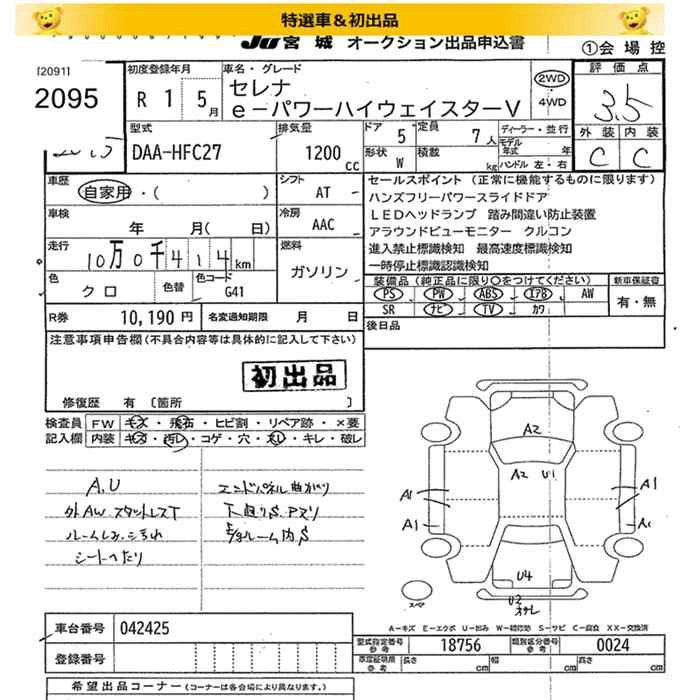 特選車＆初出品
JU 宮城 オークション出品申込書
①会場控
[2091]
2095
初度登録年月
R 1 5月
車名・グレード
セレナ
e－パワーハイウェイスターV
2WD
・
4WD
評価点
3.5
型式
DAA-HFC27
排気量
1200 cc
ドア
5
定員
7人
形状
W
積載
kg
ディーラー・並行
モデル年式 年
ハンドル 左・右
外装 内装
C C
車歴
自家用・( )
シフト
AT
車検
年 月( 日)
冷房
AAC
走行
10万0千414km
燃料
ガソリン
色
クロ
色替
色コード
G41
R券
10,190円
名変通知期限
月 日
セールスポイント (正常に機能するものに限ります)
ハンズフリーパワースライドドア
LEDヘッドランプ 踏み間違い防止装置
アラウンドビューモニター クルコン
進入禁止標識検知 最高速度標識検知
一時停止標識認識検知
装備品(純正品に限り○をつけてください)
新車保証書
PS PW ABS エアB AW
SR ナビ TV カワ
有・無
後日品
注意事項申告欄(不具合内容等は具体的に記入して下さい)
初出品
修復歴 有 [箇所 ]
検査員記入欄
FW キズ・飛石・ヒビ割・リペア跡・×要
内装 キズ・汚レ・コゲ・穴・スレ・キレ・破レ
A.U
外AW スタットレスT
ルームしみ、こすれ
シートへたり
エンドパネル曲がり
下廻りS.アリ
E/gルーム内S
A2
A2 U1
A1 A1
A1 A1
U4
U2
スペア
A－キズ E－エクボ U－凹み W－補修跡 S－サビ C－腐食 XX－交換済
車台番号
042425
登録番号
型式指定番号 参考
18756
類別区分番号 参考
0024
車庫証明用 参考
長さ cm 幅 cm 高さ cm
希望出品コーナー (コーナーは各会場により異なります。)